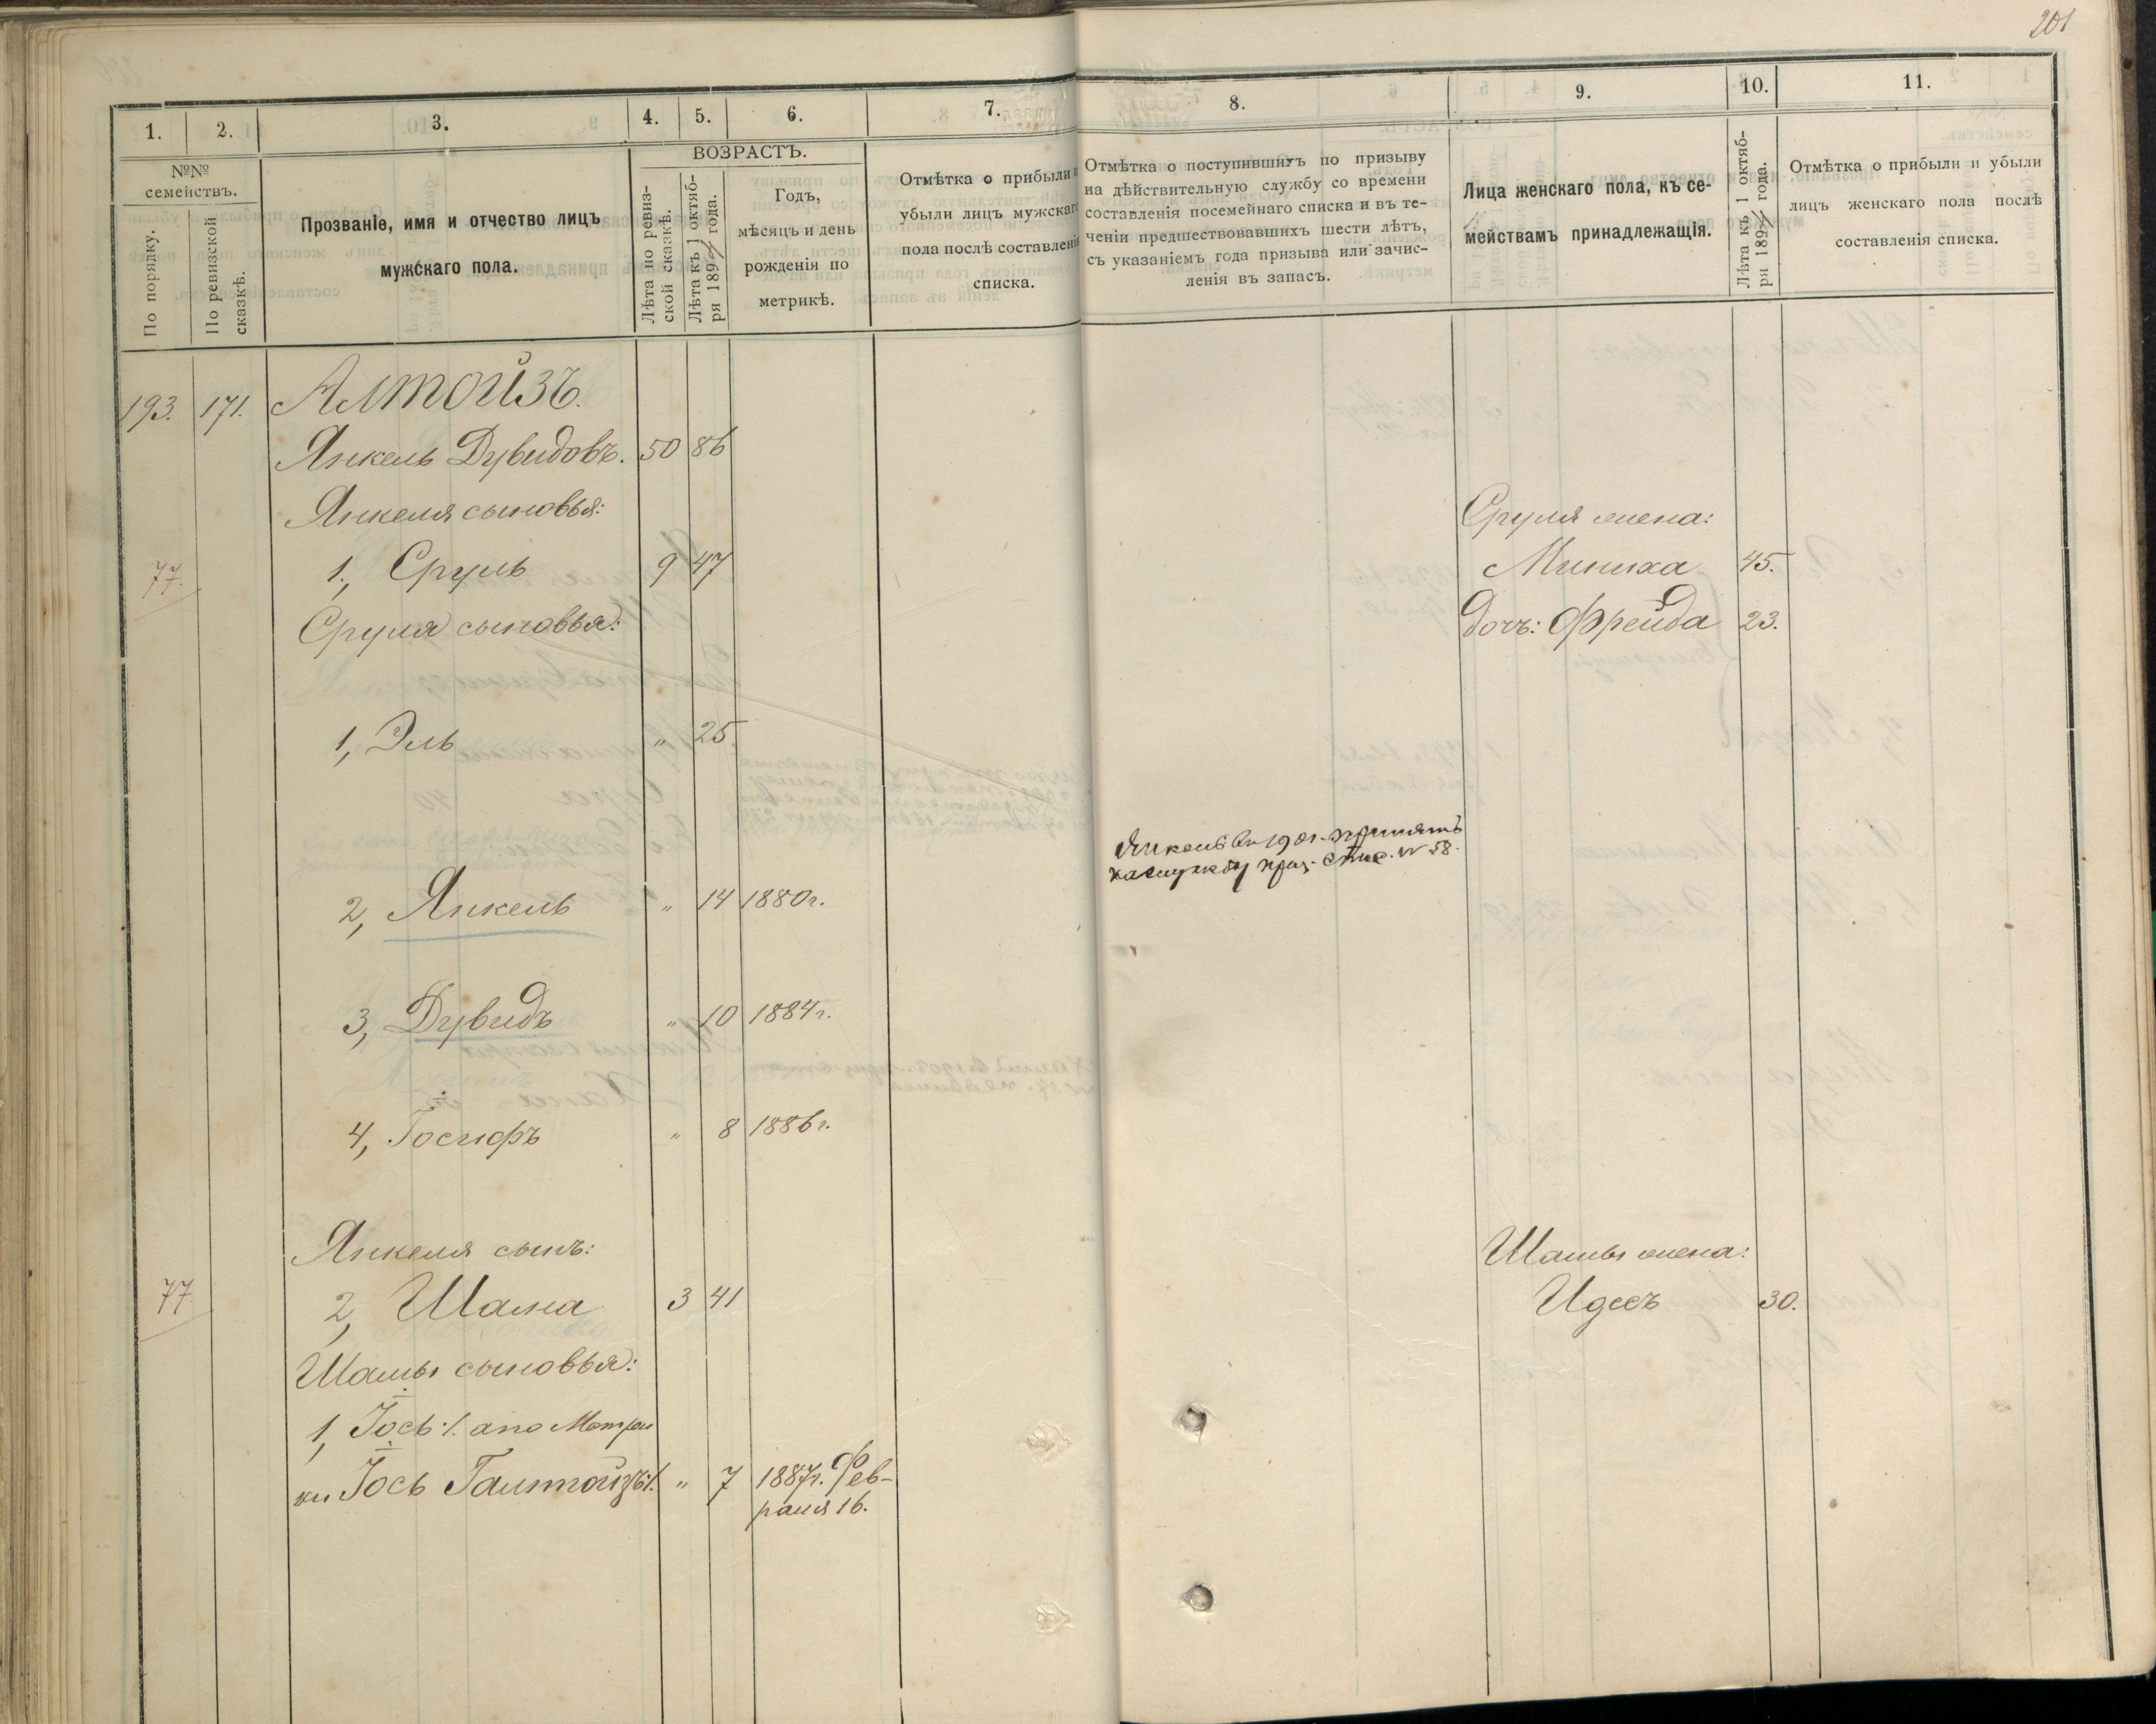 201
1. 2. 3. 4. 5. 6. 7. 8. 9. 10. 11.
№№
семействъ.
По порядку.
По ревизской
сказкѣ.
Прозваніе, имя и отчество лицъ
мужскаго пола.
ВОЗРАСТЪ.
Лѣта по ревиз-
ской сказкѣ.
Лѣта къ 1 октяб-
ря 1894 года.
Годъ,
мѣсяцъ и день
рожденія по
метрикѣ.
Отмѣтка о прибыли и
убыли лицъ мужскаго
пола послѣ составленія
списка.
Отмѣтка о поступившихъ по призыву
на дѣйствительную службу со времени
составленія посемейнаго списка и въ те-
ченіи предшествовавшихъ шести лѣтъ,
съ указаніемъ года призыва или зачис-
ленія въ запасъ.
Лица женскаго пола, къ се-
мействамъ принадлежащія.
Лѣта къ 1 октяб-
ря 1894 года.
Отмѣтка о прибыли и убыли
лицъ женскаго пола послѣ
составленія списка.
193. 171. Алтойзъ.
Янкель Дувидовъ. 50 86
Янкеля сыновья: Сруля жена:
77. 1, Сруль 9 47 Миниха 45.
Сруля сыновья: дочь: Фрейда 23.
1, Эль " 25
Янкель въ 1901 г. принятъ
на службу приз. спис. № 58.
2, Янкель " 14 1880 г.
3, Дувидъ " 10 1884 г.
4, Іосифъ " 8 1886 г.
Янкеля сынъ: Шамы жена:
77. 2, Шама 3 41 Идесъ 30.
Шамы сыновья:
1, Іось ·/. а по Метри
ки Іось Галтойзъ ·/. " 7 1887 г. Фев-
раля 16.